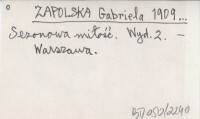 ZAPOLSKA Gabriela 1909...
Sezonowa miłość. Wyd. 2. –
Warszawa.